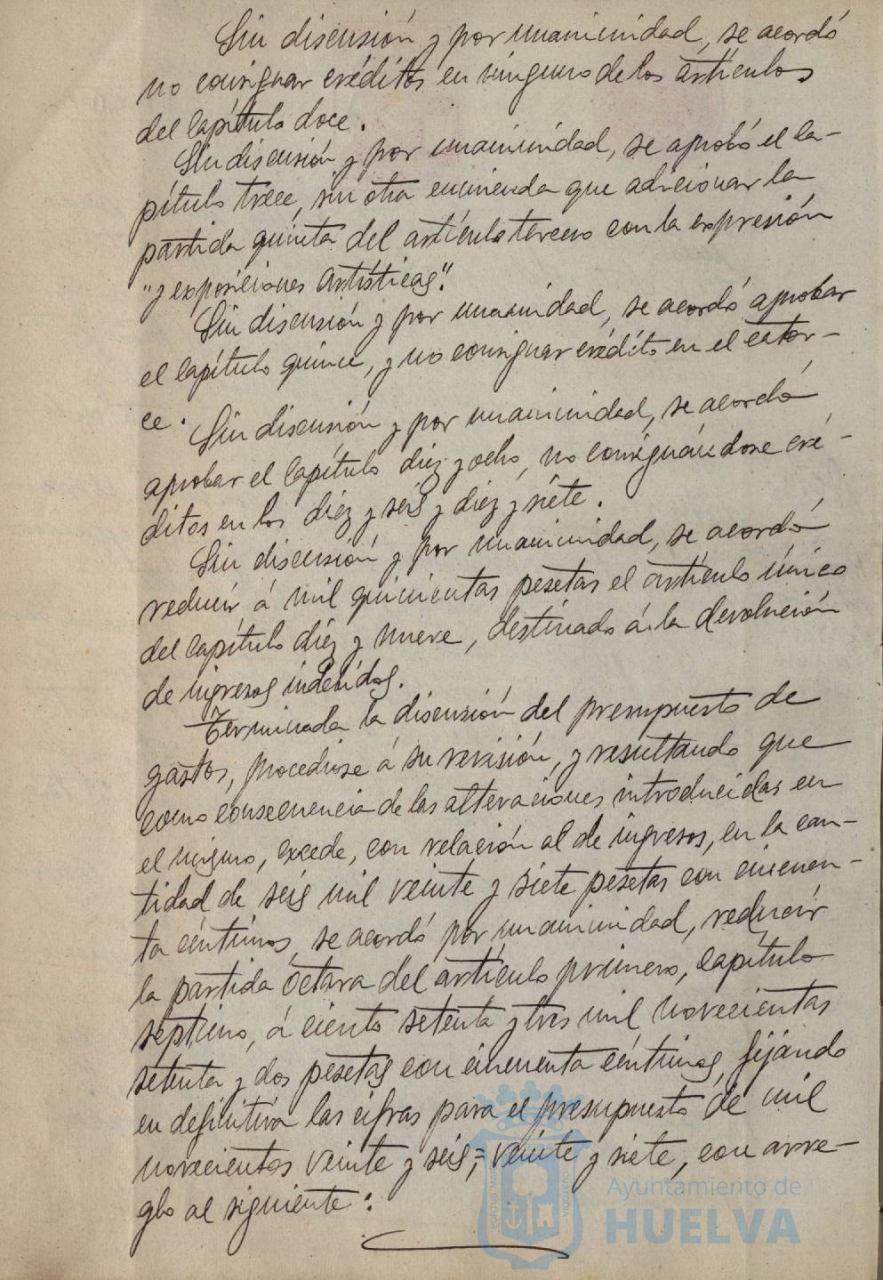 Sin discusión y por unanimidad, se acordó
no consignar créditos en ninguno de los artículos
del Capítulo doce.
Sin discusión y por unanimidad, se aprobó el Ca-
pítulo trece, sin otra enmienda que adicionar la
partida quinta del artículo tercero con la expresión
"y exposiciones artísticas".
Sin discusión y por unanimidad, se acordó aprobar
el Capítulo quince, y no consignar crédito en el cator-
ce.
Sin discusión y por unanimidad, se acordó
aprobar el Capítulo diez y ocho, no consignándose cré-
ditos en los diez y seis y diez y siete.
Sin discusión y por unanimidad, se acordó
reducir á mil quinientas pesetas el artículo único
del Capítulo diez y nueve, destinado á la devolución
de ingresos indebidos.
Terminada la discusión del presupuesto de
gastos, procediose á su revisión, y resultando que
como consecuencia de las alteraciones introducidas en
el mismo, excede, con relación al de ingresos, en la can-
tidad de seis mil veinte y siete pesetas con cincuen-
ta céntimos, se acordó por unanimidad, reducir
la partida octava del artículo primero, Capítulo
séptimo, á ciento setenta y tres mil novecientas
setenta y dos pesetas con cincuenta céntimos, fijándo
en definitiva las cifras para el presupuesto de mil
novecientos veinte y seis=veinte y siete, con arre-
glo al siguiente:
Ayuntamiento de
HUELVA